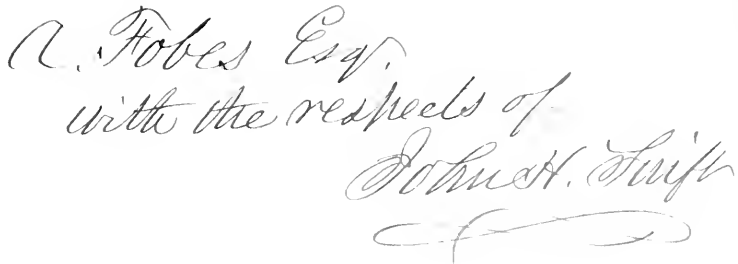 A. Fobes Esqr.
with the respects of
John H. Swift